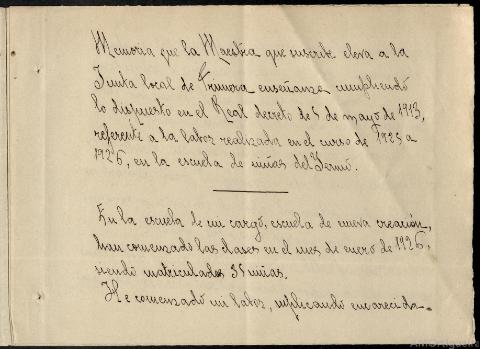 Memoria que la Maestra que suscribe eleva a la
Junta local de Primera enseñanza cumpliendo
lo dispuesto en el Real decreto de 5 de mayo de 1913,
referente a la labor realizada en el curso de 1925 a
1926, en la escuela de niñas del
En la escuela de mi cargo, escuela de nueva creación,
han comenzado las clases en el mes de enero de 1926,
siendo matriculadas 35 niñas.
He comenzado mi labor, suplicando encarecida-